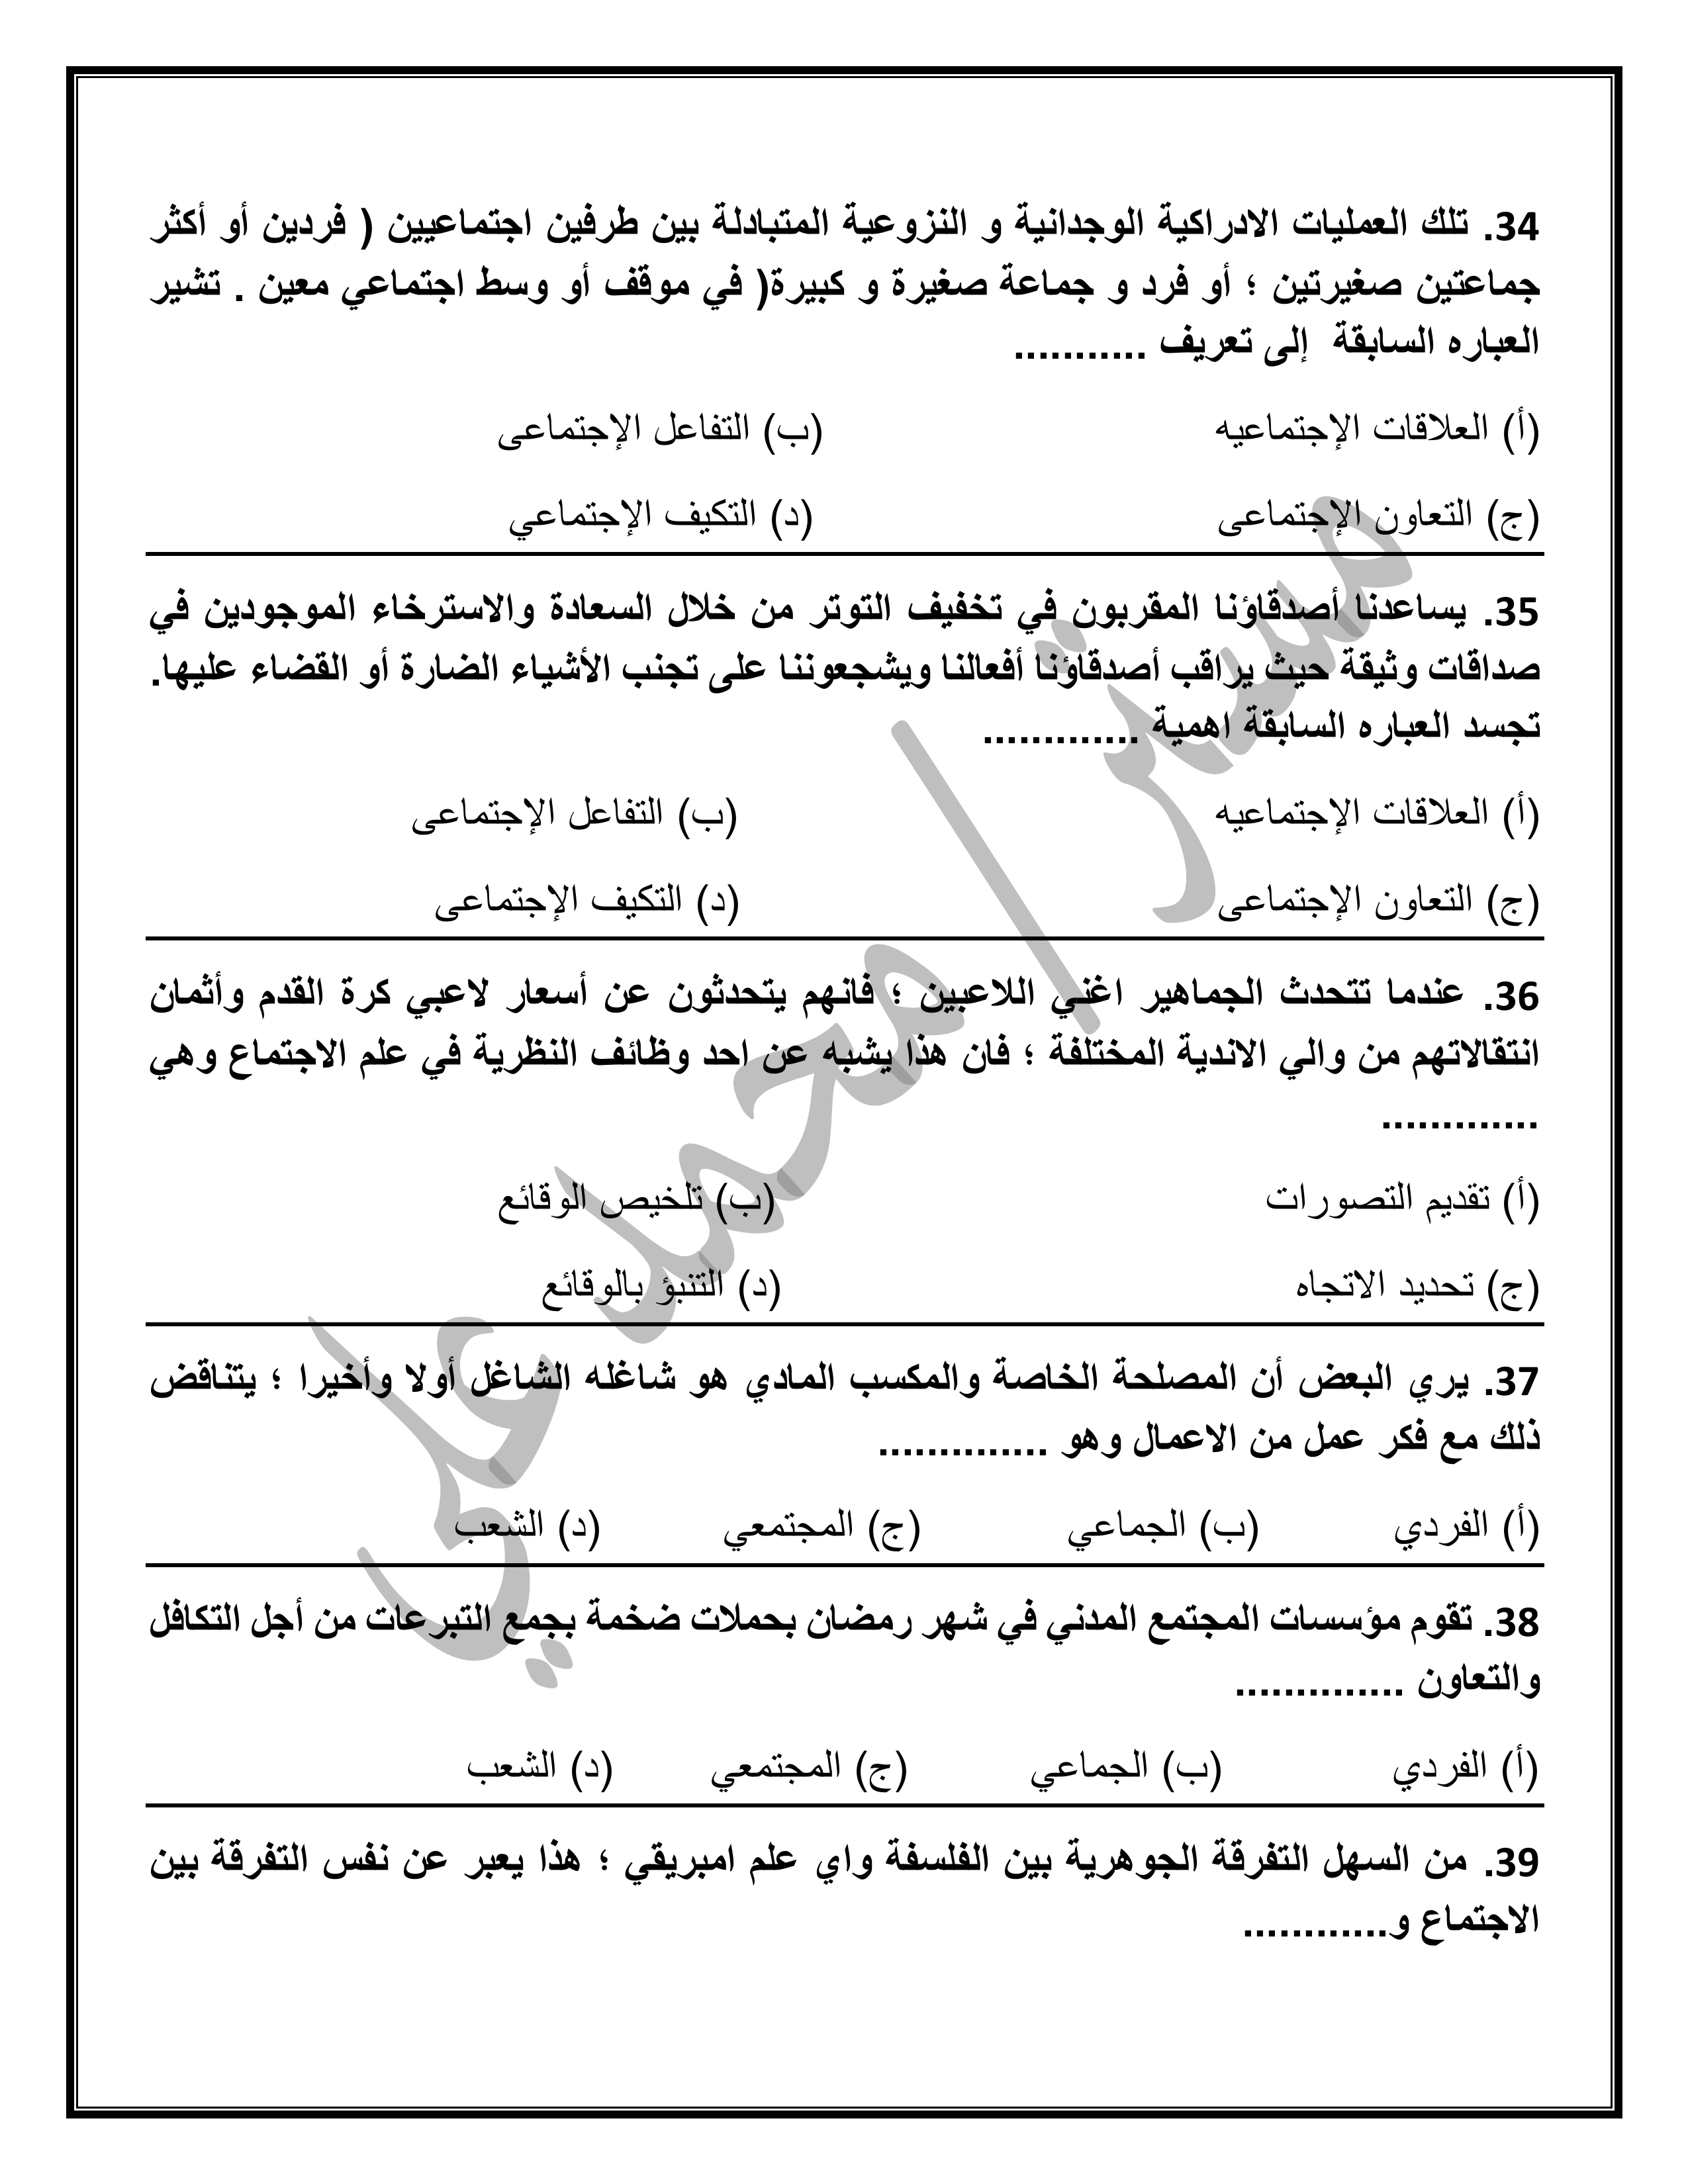 34. تلك العمليات الادراكية الوجدانية و النزوعية المتبادلة بين طرفين اجتماعيين ( فردين أو أكثر
جماعتين صغيرتين ؛ أو فرد و جماعة صغيرة و كبيرة( في موقف أو وسط اجتماعي معين . تشير
العباره السابقة إلى تعريف ...........
(أ) العلاقات الإجتماعيه (ب) التفاعل الإجتماعى
(ج) التعاون الإجتماعى (د) التكيف الإجتماعي
35. يساعدنا أصدقاؤنا المقربون في تخفيف التوتر من خلال السعادة والاسترخاء الموجودين في
صداقات وثيقة حيث يراقب أصدقاؤنا أفعالنا ويشجعوننا على تجنب الأشياء الضارة أو القضاء عليها.
تجسد العباره السابقة اهمية .............
(أ) العلاقات الإجتماعيه (ب) التفاعل الإجتماعى
(ج) التعاون الإجتماعى (د) التكيف الإجتماعى
36. عندما تتحدث الجماهير اغني اللاعبين ؛ فانهم يتحدثون عن أسعار لاعبي كرة القدم وأثمان
انتقالاتهم من والي الاندية المختلفة ؛ فان هذا يشبه عن احد وظائف النظرية في علم الاجتماع وهي
.............
(أ) تقديم التصورات (ب) تلخيص الوقائع
(ج) تحديد الاتجاه (د) التنبؤ بالوقائع
37. يري البعض أن المصلحة الخاصة والمكسب المادي هو شاغله الشاغل أولا وأخيرا ؛ يتناقض
ذلك مع فكر عمل من الاعمال وهو ..............
(أ) الفردي (ب) الجماعي (ج) المجتمعي (د) الشعب
38. تقوم مؤسسات المجتمع المدني في شهر رمضان بحملات ضخمة بجمع التبرعات من أجل التكافل
والتعاون ..............
(أ) الفردي (ب) الجماعي (ج) المجتمعي (د) الشعب
39. من السهل التفرقة الجوهرية بين الفلسفة واي علم امبريقي ؛ هذا يعبر عن نفس التفرقة بين
الاجتماع و............
مستر/ محمد علي